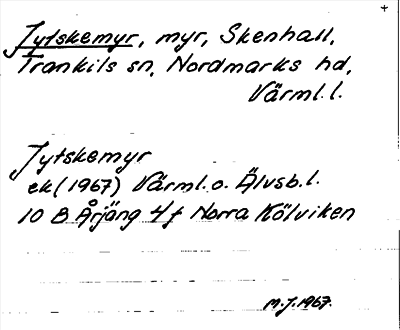 Jytskemyr, myr, Skenhall,
Trankils sn, Nordmarks hd,
Värml.l.
Jytskemyr
ek (1967) Värml. o. Älvsb.l.
10 B Årjäng 4f Norra Kölviken
M.J. 1967.